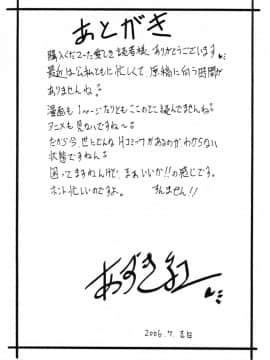 あとがき
購入してくださった愛しき読者様、ありがとうございます
最近は公私ともに忙しくて、原稿に向う時間が
ありませんね。
漫画も1ページたりともここのとこ読んでませんね。
アニメも見ないですね〜。
だから今、世にどんなHコミックがあるのかわからない
状態ですねん。
困ってますねんけど、まぁいいか!!の感じです。
ホント忙しいのですよ。 すんません!!
あずき紅
2006.7. 吉日